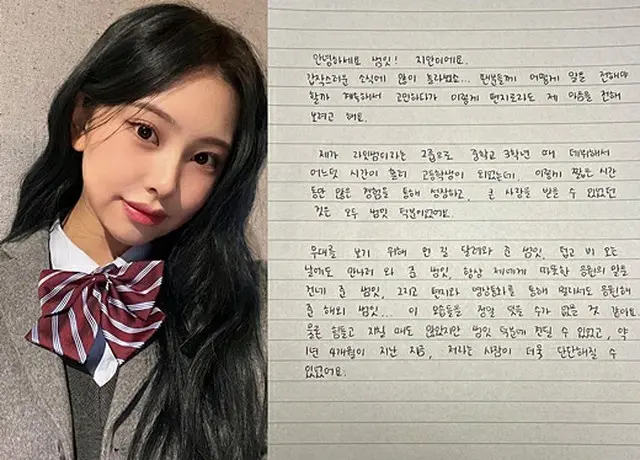 안녕하세요 범잇! 지안이에요.
갑작스러운 소식에 많이 놀라셨죠... 팬분들께 어떻게 말을 전해야
할까 계속해서 고민하다가 이렇게 편지로라도 제 마음을 전해
보려고 해요.
제가 라잇썸이라는 그룹으로 중학교 3학년 때 데뷔해서
어느덧 시간이 흘러 고등학생이 되었는데, 이렇게 짧은 시간
동안 많은 경험을 통해 성장하고, 큰 사랑을 받을 수 있었던
것은 모두 썸잇 덕분이었어요.
무대를 보기 위해 먼 길 달려와 준 썸잇, 덥고 비 오는
날에도 만나러 와 준 썸잇, 항상 저에게 따뜻한 응원의 말을
건네 준 썸잇, 그리고 편지와 영상통화를 통해 멀리서도 응원해
준 해외 썸잇... 이 모습들을 정말 잊을 수가 없을 것 같아요.
물론 힘들고 지칠 때도 많았지만 썸잇 덕분에 견딜 수 있었고, 약
1년 4개월이 지난 지금, 저라는 사람이 더욱 단단해질 수
있었어요.